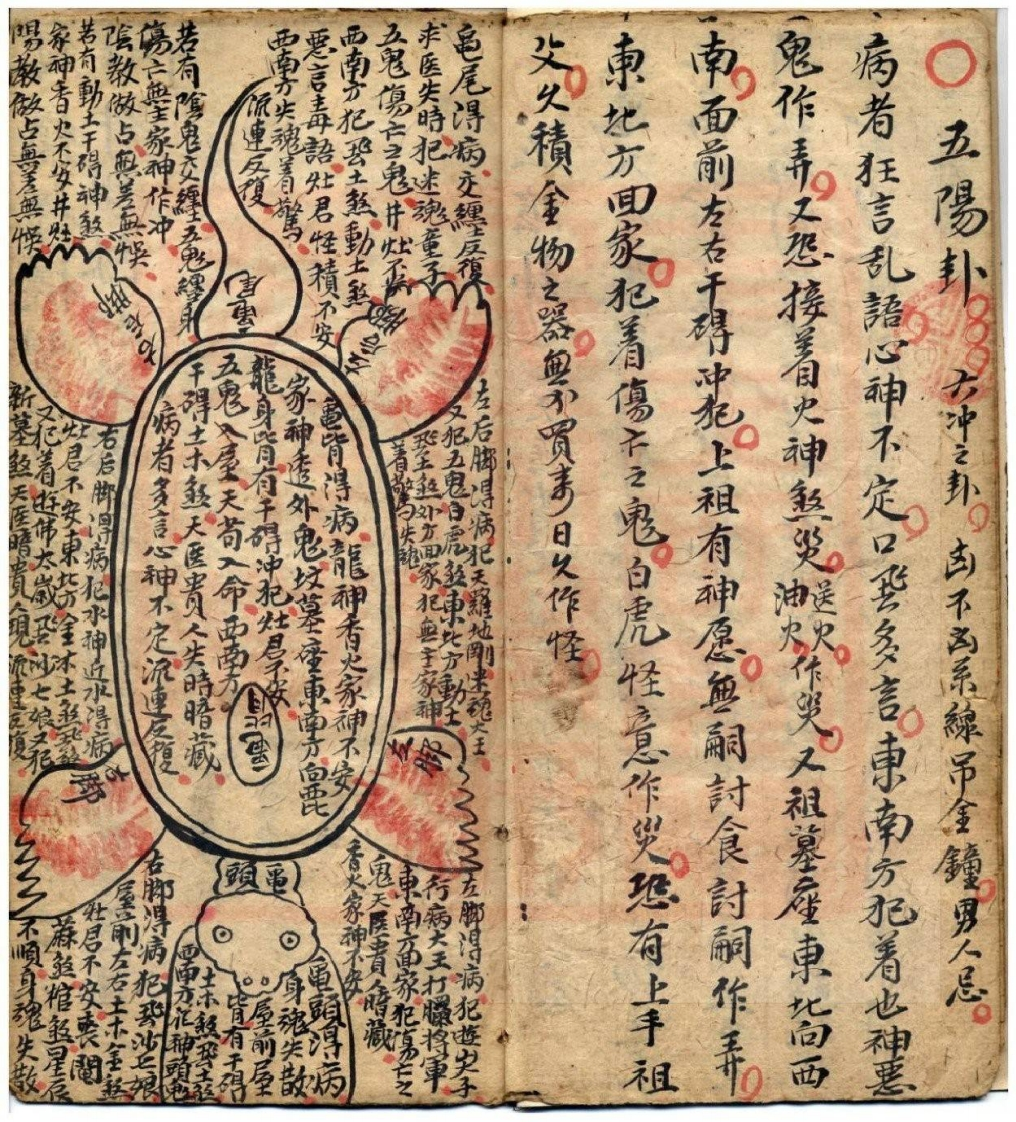 五陽卦 六冲之卦 凶不凶系線吊金鐘男人忌
病者狂言乱語心神不定口恐多言東南方犯着也神惡
鬼作弄又恐接着火神煞災送火油火作災又祖墓座東北向西
南面前左右干碍冲犯上祖有神愿無嗣討食討嗣作弄
東北方回家犯着傷亡之鬼白虎怪意作災恐有上手祖
父久積金物之器無不買来日久作怪
龟尾得病交纏反復
求医失時犯迷魂童子
五鬼傷亡之鬼井灶不安
西南方犯恐土煞動土煞
惡言毒語灶君怪積不安
西南方失魂着驚
流連反復
若有陰鬼交纏五鬼纏身
傷亡無主家神作冲
陰教做占無差無悞
若有動土干碍神煞
家神香火不安井灶
陽教做占無差無悞
龟尾
左后脚
右后脚
左后脚得病犯天羅地剛迷魂大王
又犯五鬼白虎煞東北方動土
恐土煞外方回家犯無主家神
着驚失魂
龟皆得病龍神香火家神不安
家神透外鬼坟墓座東南方向
龍身皆有干碍冲犯灶君不安
五鬼入屋天苟入命西南方
干碍土木煞天医貴人失時暗藏
病者多言心神不定流連反復
龟皆
右后脚得病犯水神近水得病
灶君不安東北方金木土煞
又犯着遊佛太歲恐沙七娘又犯
新墓煞天医暗貴人現流連反復
左脚
右脚
左脚得病犯遊
行病大王打臘将軍
東南方面家犯傷亡之
鬼天医貴人暗藏
香火家神不安
龟頭
龟頭得病
身魂失散
屋前屋
皆有干碍
土木煞恐土煞
西南方犯神頭鬼
右脚得病犯恐沙七娘
屋前左右土木金煞
灶君不安喪
麻煞棺煞星辰
不順身魂失散